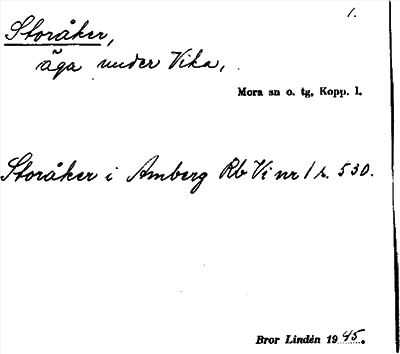 1.
Storåker,
äga under Vika,
Mora sn o. tg, Kopp. l.
Storåker i Amberg Rb Vi nr 1 s. 530.
Bror Lindén 1945.